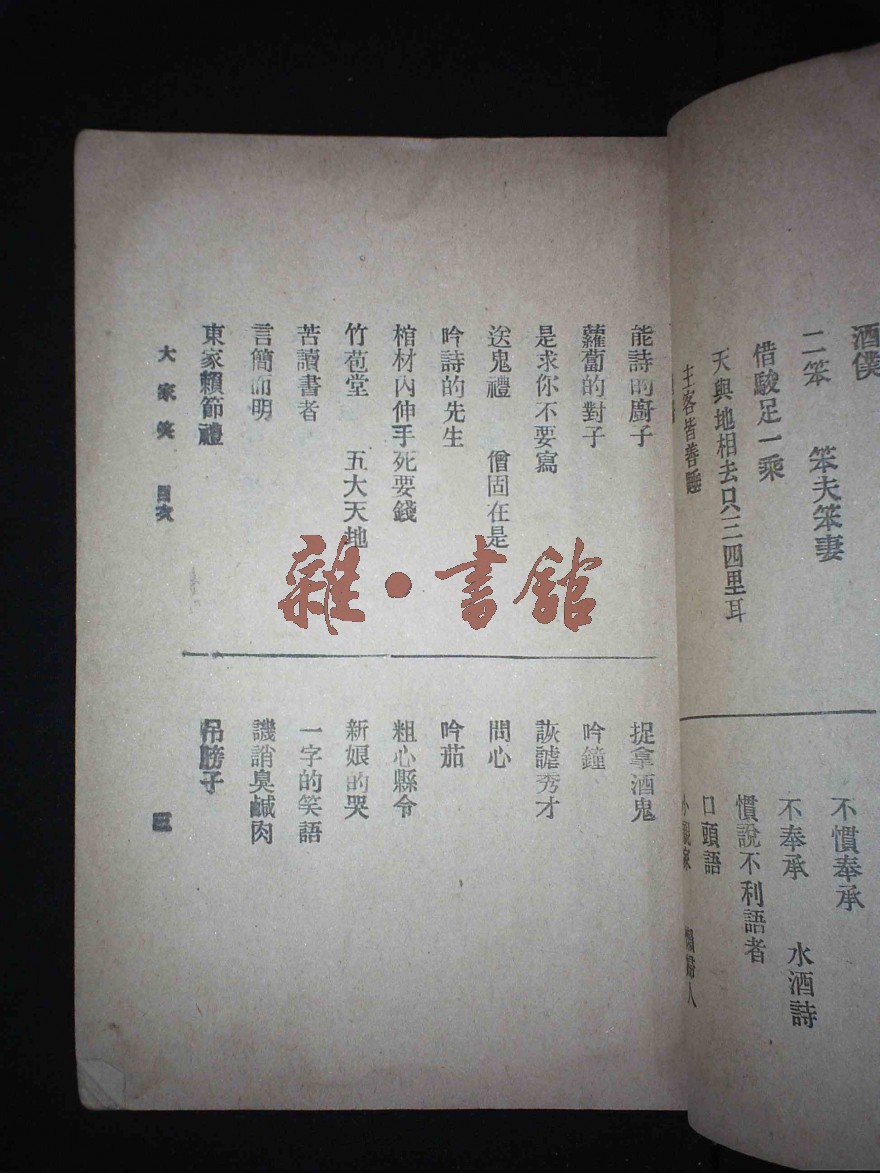 酒僕
二笨　笨夫笨妻
借駿足一乘
天與地相去只三四里耳
主客皆善睡
不慣奉承
不奉承　水酒詩
慣說不利語者
口頭語
能詩的廚子
蘿蔔的對子
是求你不要寫
送鬼禮　僧固在是
吟詩的先生
棺材內伸手死要錢
竹苞堂　五大天地
苦讀書者
言簡而明
東家賴節禮
捉拿酒鬼
吟鐘
詼謔秀才
問心
吟茄
粗心縣令
新娘的哭
一字的笑語
譏誚臭鹹肉
吊膀子
大家笑　目次
三
雜·書館